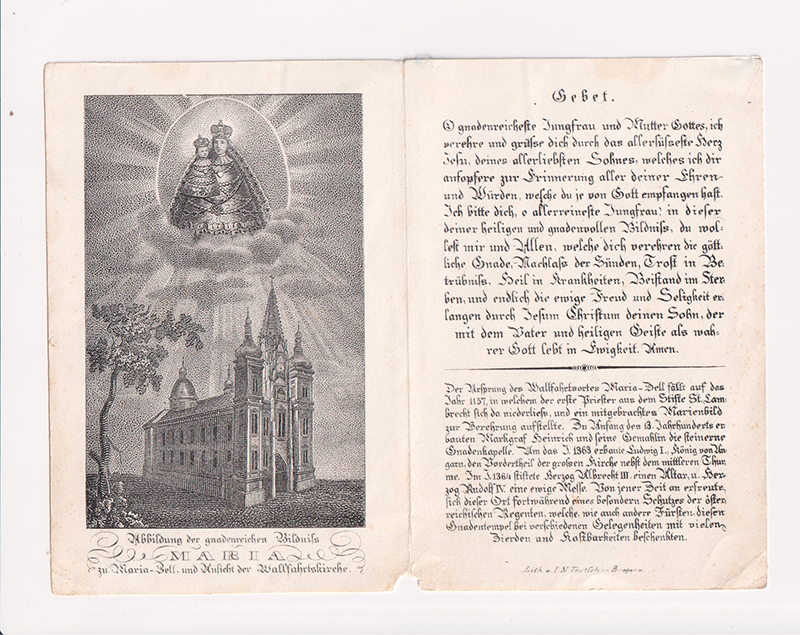 Abbildung der gnadenreichen Bildniss
MARIA
zu Maria-Zell, und Ansicht der Wallfahrtskirche.
Gebet.
O gnadenreicheste Jungfrau und Mutter Gottes, ich
verehre und grüsse dich durch das allersüsseste Herz
Jesu, deines allerliebsten Sohnes, welches ich dir
aufopfere zur Erinnerung aller deiner Ehren-
und Würden, welche du je von Gott empfangen hast.
Ich bitte dich, o allerreineste Jungfrau! in dieser
deiner heiligen und gnadenvollen Bildniss, du wol-
lest mir und Allen, welche dich verehren die gött-
liche Gnade, Nachlass der Sünden, Trost in Be-
trübniss, Heil in Krankheiten, Beistand im Ster-
ben, und endlich die ewige Freud und Seligkeit er-
langen durch Jesum Christum deinen Sohn, der
mit dem Vater und heiligen Geiste als wah-
rer Gott lebt in Ewigkeit. Amen.
Der Ursprung des Wallfahrtsortes Maria-Zell fällt auf das
Jahr 1157, in welchem der erste Priester aus dem Stifte St. Lam-
brecht sich da niederliess, und ein mitgebrachtes Marienbild
zur Verehrung aufstellte. Zu Anfang des 13. Jahrhunderts er-
bauten Markgraf Heinrich und seine Gemahlin die steinerne
Gnadenkapelle. Um das J. 1363 erbaute Ludwig I., König von Un-
garn, den Vordertheil der großen Kirche nebst dem mittleren Thur-
me. Im J. 1364 stiftete Herzog Albrecht III. einen Altar, u. Her-
zog Rudolf IV. eine ewige Messe. Von jener Zeit an erfreute
sich dieser Ort fortwährend eines besondern Schutzes der öster-
reichischen Regenten, welche, wie auch andere Fürsten, diesen
Gnadentempel bei verschiedenen Gelegenheiten mit vielen
Zierden und Kostbarkeiten beschenkten.
Lith. v. I. N. Teutsch in Bregenz